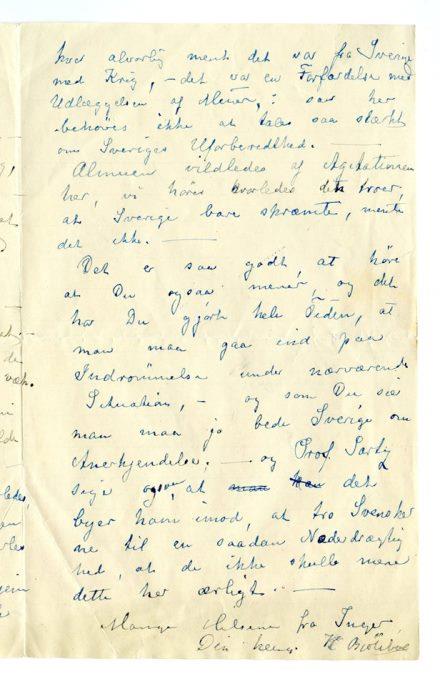 hvor alvorlig ment det var fra Sverige
med Krig, – det var en Forfærdelse med
Udlæggelsen af Miner, : saa her
behøves ikke at tales saa stærkt
om Sveriges Uforberedthed. —
Almuen vildledes af Agitationen
her, vi hører hvorledes de troer,
at Sverige bare skræmte, mente
det ikke. —
Det er saa godt, at høre
at Du ogsaa mener, og det
har Du gjørt hele Tiden, at
man maa gaa ind paa
Indrømmelse under nærværende
Situation, – og som Du sier
man maa jo bede Sverige om
Anerkjendelse. — og Prof
sige at man det
byer ham imod, at tro Svensker
ne til en saadan Nederdrægtig
hed, at de ikke skulle mene
dette her ærligt. —
Mange Hilsener fra Inger,
Din heng.